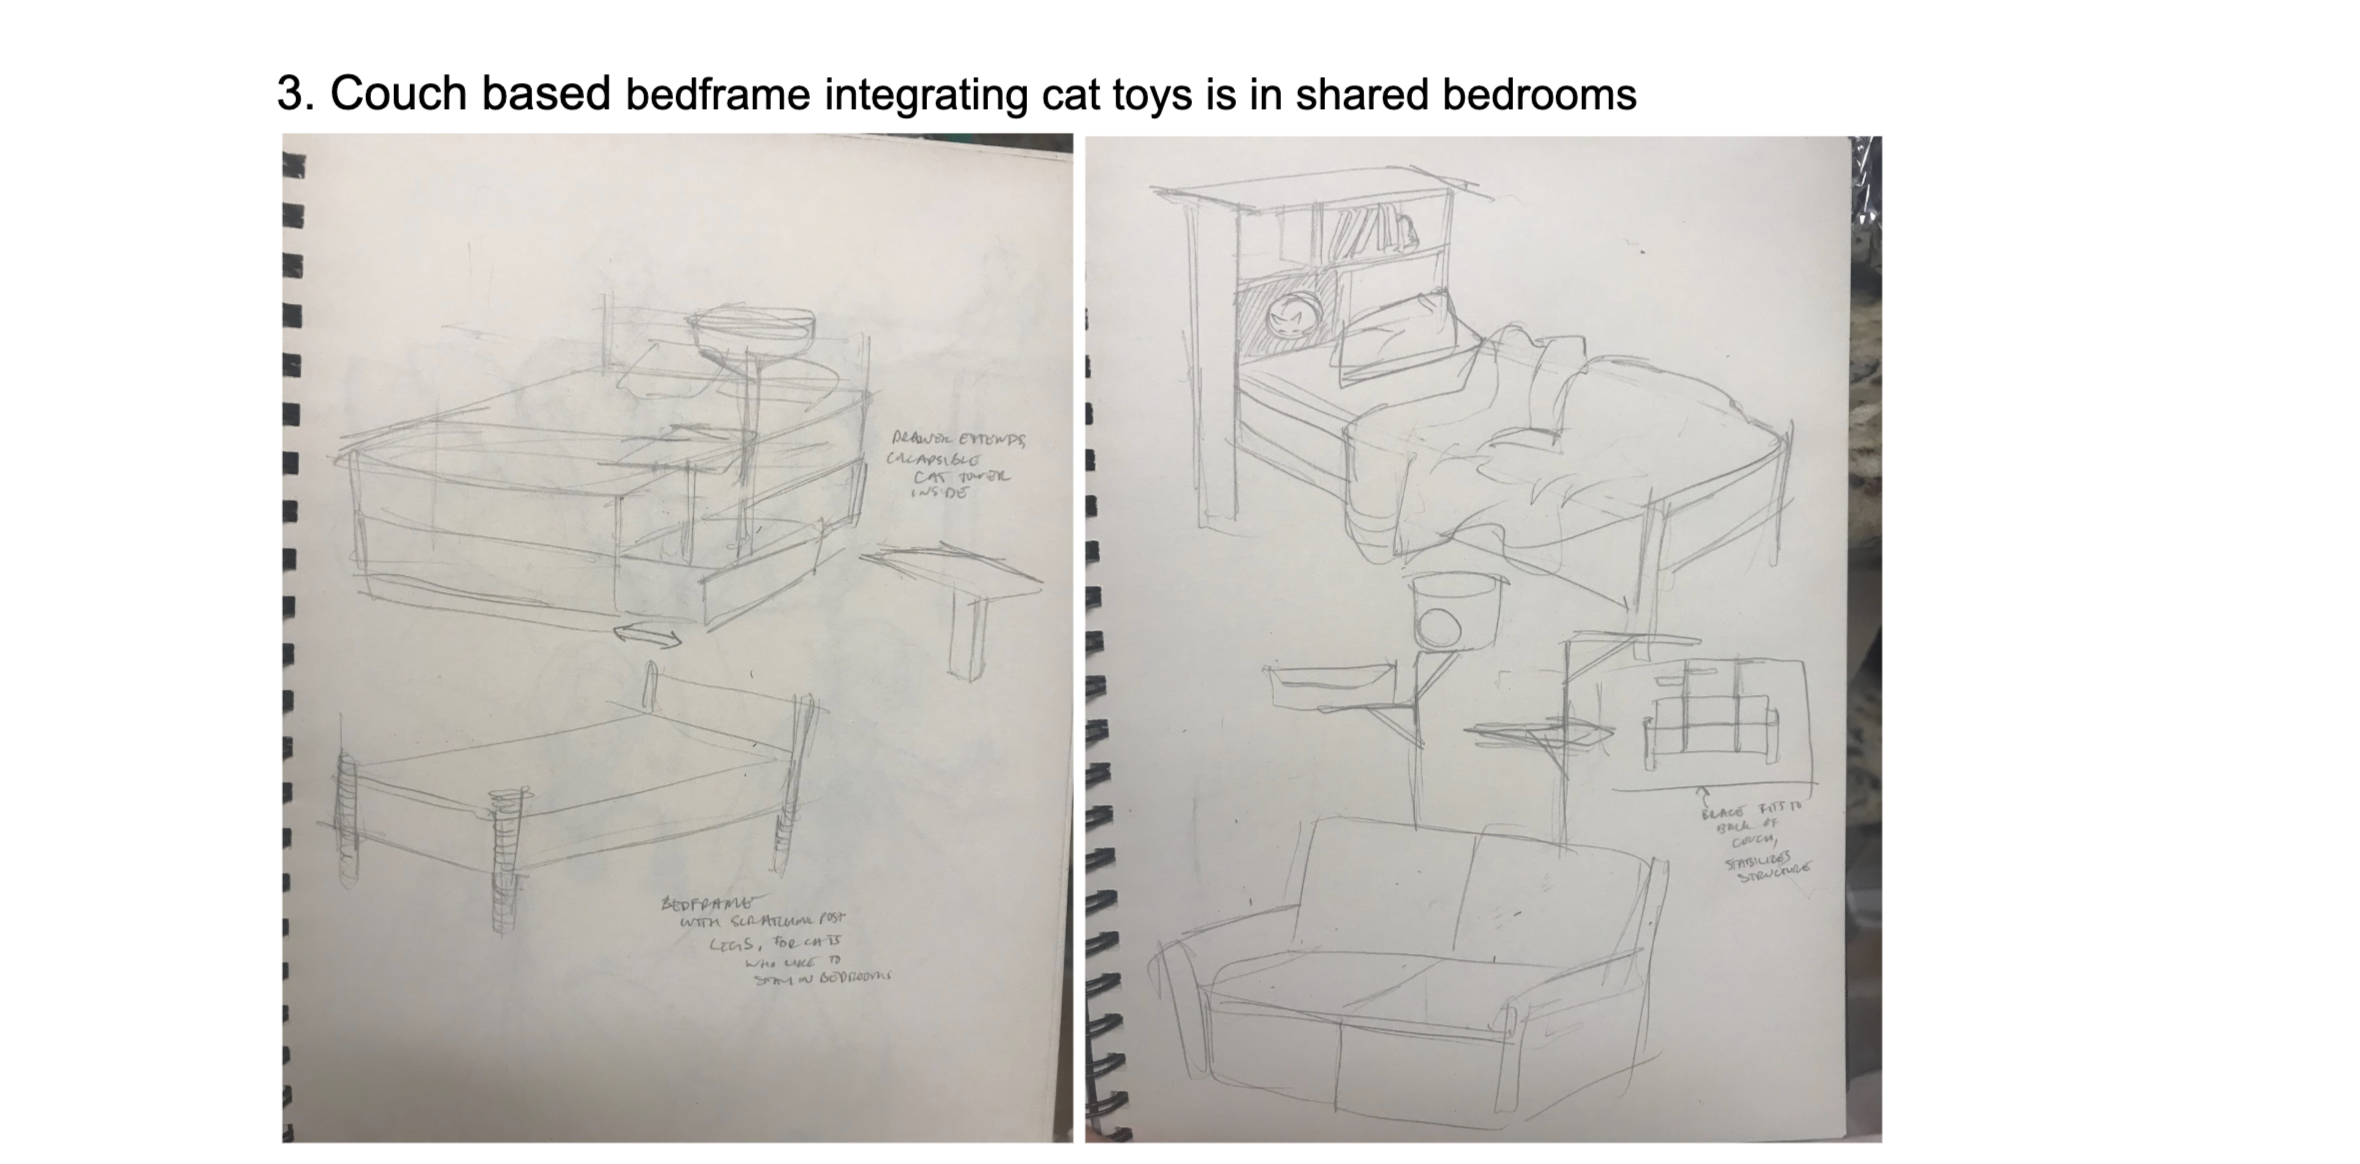 3. Couch based bedframe integrating cat toys is in shared bedrooms
DRAWER EXTENDS,
COLAPSIBLE
CAT TOWER
INSIDE
BEDFRAME
WITH SCRATCHING POST
LEGS, FOR CATS
WHO LIKE TO
STAY IN BEDROOMS
BRACE FITS TO
BACK OF
COUCH,
STABILIZES
STRUCTURE